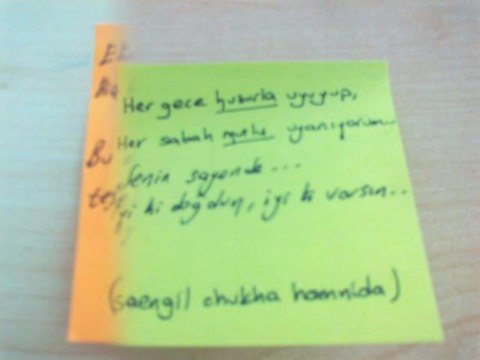 Her gece huzurla uyuyup,
Her sabah mutlu uyanıyorum...
Senin sayende...
iyi ki doğdun, iyi ki varsın..
(saengil chukha hamnida)